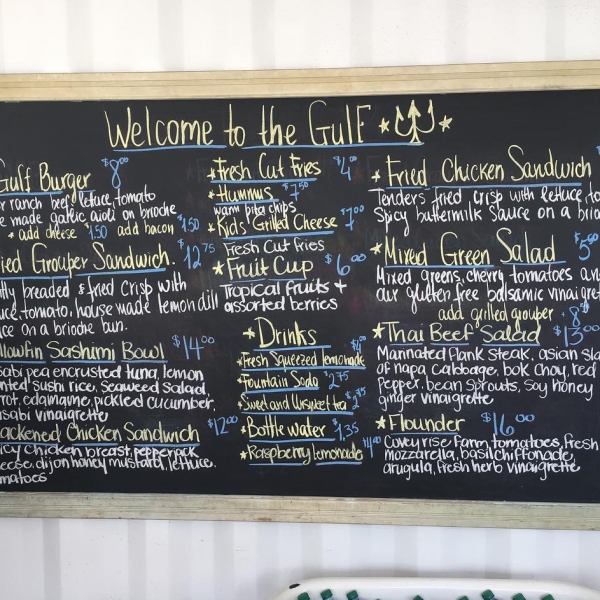 Welcome to the Gulf
Gulf Burger $8.00
ranch beef, lettuce, tomato
made garlic aioli on brioche
add cheese $1.50 add bacon $1.50
Grouper Sandwich. $12.75
breaded & fried crisp with
tomato, house made lemon dill
on a brioche bun.
Sashimi Bowl $14.00
pea encrusted tuna, lemon
sushi rice, Seaweed Salad,
edamame, pickled cucumber,
vinaigrette
Chicken Sandwich $12.00
chicken breast, pepperjack
dijon honey mustard, lettuce.
Fresh Cut Fries $4.00
Hummus $7.50
warm pita chips
Kid's Grilled Cheese $7.00
Fresh Cut fries
Fruit Cup $6.00
Tropical fruits +
assorted berries
Drinks
Fresh Squeezed lemonade $4.00
Fountain Soda $2.75
Sweet and Unsweet tea
Bottle water $1.35
Raspberry lemonade $4.00
Fried Chicken Sandwich
Tenders fried crisp with lettuce,
Spicy buttermilk sauce on a
Mixed Green Salad
Mixed greens, cherry tomatoes
our gluten free balsamic
add grilled grouper + 8
Thai Beef Salad $13.00
Marinated flank steak, asian
of napa cabbage, bok choy, red
Pepper, bean sprouts, soy honey
ginger vinaigrette
Flounder $16.00
Covey rise farm tomatoes, fresh
mozzarella, basil chiffonade,
arugula, fresh herb vinaigrette